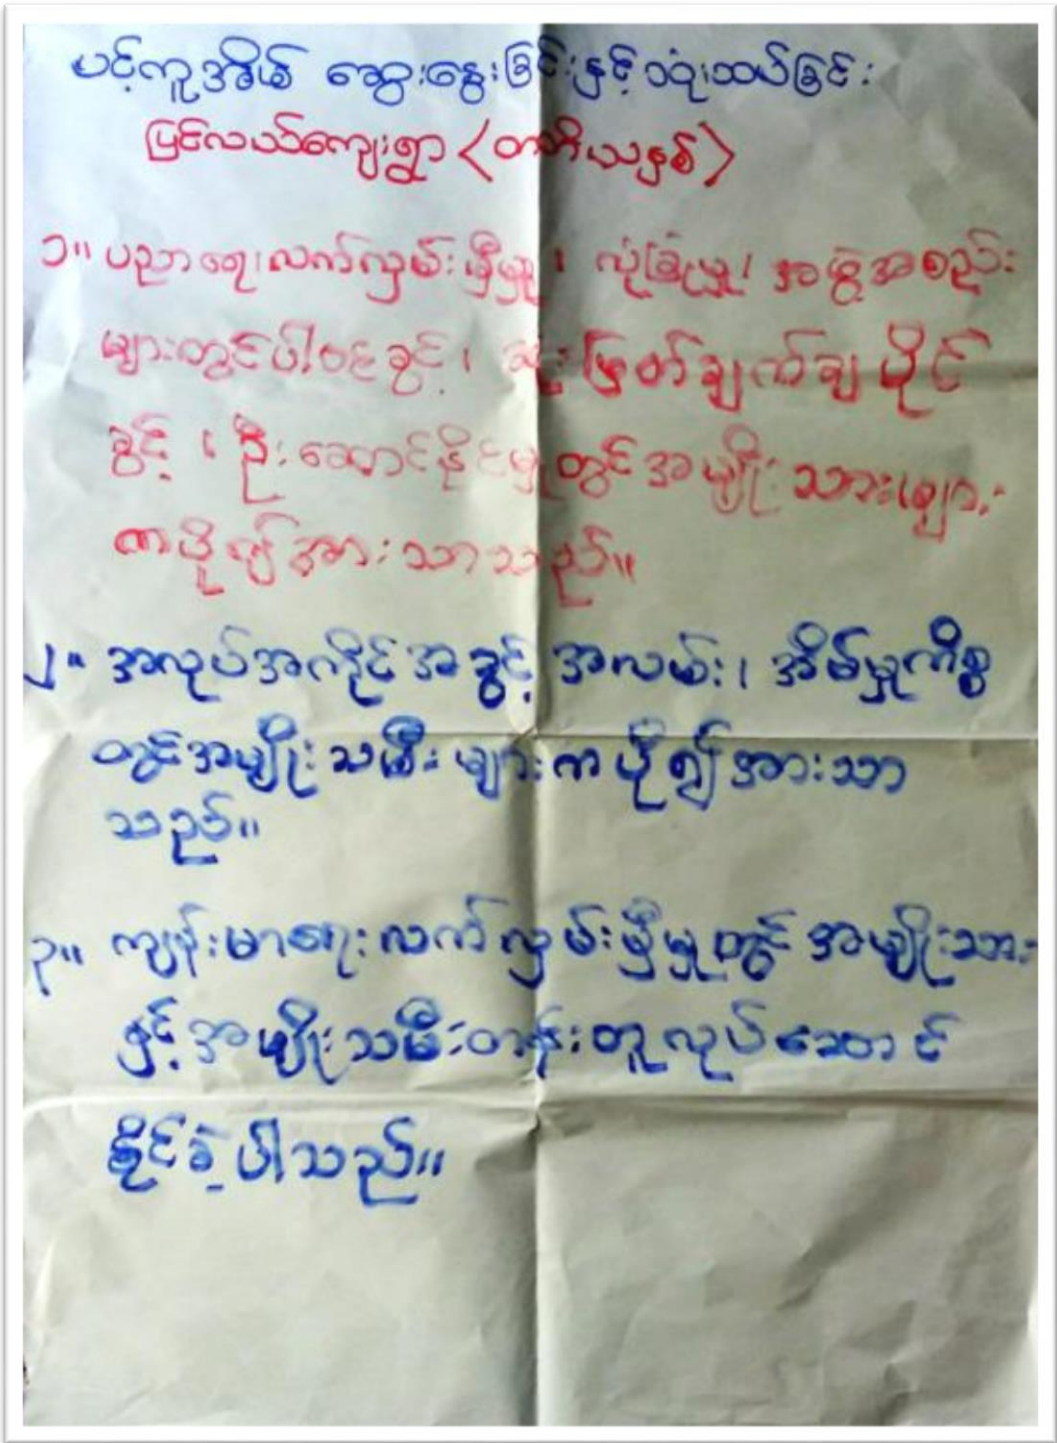 ပင့်ကူအိမ် ဆွေးနွေးခြင်းနှင့်သုံးသပ်ခြင်း
ပြင်လယ်ကျေးရွာ (တတိယနှစ်)
၁။ ပညာရေး၊လက်လှမ်းမှီမှု၊ လုံခြုံမှု၊ အဖွဲ့အစည်း
များတွင်ပါဝင်ခွင့်၊ ဆုံးဖြတ်ချက်ချပိုင်
ခွင့်၊ ဦးဆောင်နိုင်မှုတွင်အမျိုးသားများ
ကပို၍အားသာသည်။
၂။ အလုပ်အကိုင်အခွင့်အလမ်း၊ အိမ်မှုကိစ္စ
တွင်အမျိုးသမီးများကပို၍အားသာ
သည်။
၃။ ကျန်းမာရေးလက်လှမ်းမှီမှုတွင်အမျိုးသား
နှင့်အမျိုးသမီးတန်းတူလုပ်ဆောင်
နိုင်ခဲ့ပါသည်။